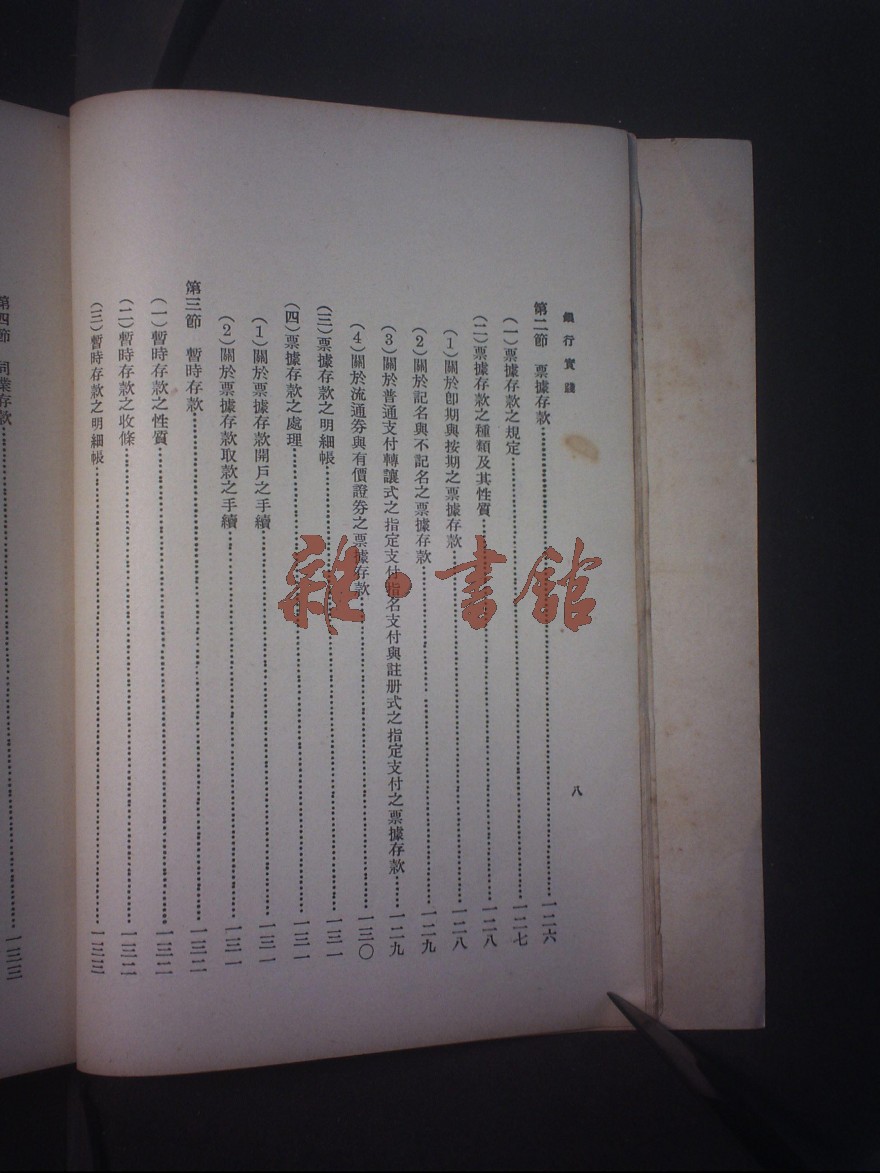 銀行實踐
八
第二節　票據存款……一二六
（一）票據存款之規定……一二七
（二）票據存款之種類及其性質……一二八
（1）關於卽期與按期之票據存款……一二八
（2）關於記名與不記名之票據存款……一二九
（3）關於普通支付轉讓式之指定支付指名支付與註册式之指定支付之票據存款……一二九
（4）關於流通券與有價證券之票據存款……一三〇
（三）票據存款之明細帳……一三一
（四）票據存款之處理……一三一
（1）關於票據存款開戶之手續……一三一
（2）關於票據存款取款之手續……一三一
第三節　暫時存款……一三二
（一）暫時存款之性質……一三二
（二）暫時存款之收條……一三二
（三）暫時存款之明細帳……一三三
第四節　同業存款……一三三
雜·書館